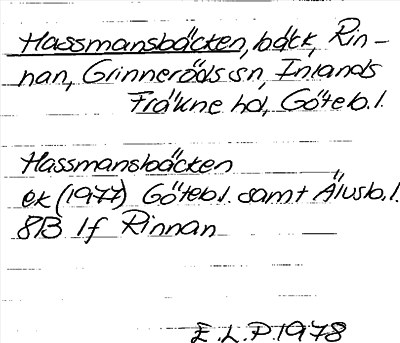 Hassmansbäcken, bäck, Rin-
nan, Grinneröds sn, Inlands
Fräkne hd, Göteb. l.
Hassmansbäcken
ek (1977) Göteb. l. samt Älvsb. l.
8B 1f Rinnan
E. L. P. 1978